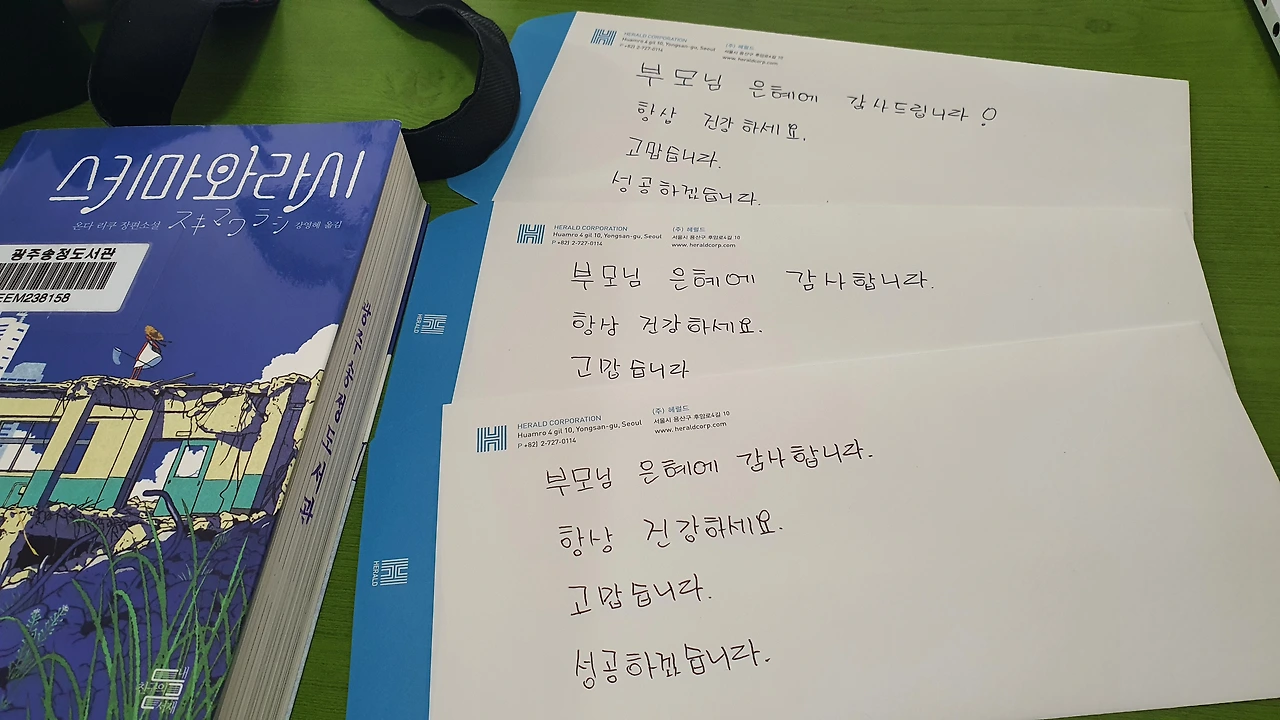 스키마와라시
온다 리쿠 장편소설 スキマワラシ 강영혜 옮김
광주송정도서관
EEM238158
광주송정도서관
내
친구의
서재
HERALD CORPORATION
Huamro 4 gil 10, Yongsan-gu, Seoul
P +82) 2-727-0114
(주) 헤럴드
서울시 용산구 후암로4길 10
www.heraldcorp.com
부모님 은혜에 감사드립니다!
항상 건강하세요.
고맙습니다.
성공하겠습니다.
HERALD CORPORATION
Huamro 4 gil 10, Yongsan-gu, Seoul
P +82) 2-727-0114
(주) 헤럴드
서울시 용산구 후암로4길 10
www.heraldcorp.com
부모님 은혜에 감사합니다.
항상 건강하세요.
고맙습니다
HERALD
HERALD CORPORATION
Huamro 4 gil 10, Yongsan-gu, Seoul
P +82) 2-727-0114
(주) 헤럴드
서울시 용산구 후암로4길 10
www.heraldcorp.com
부모님 은혜에 감사합니다.
항상 건강하세요.
고맙습니다.
성공하겠습니다.
HERALD